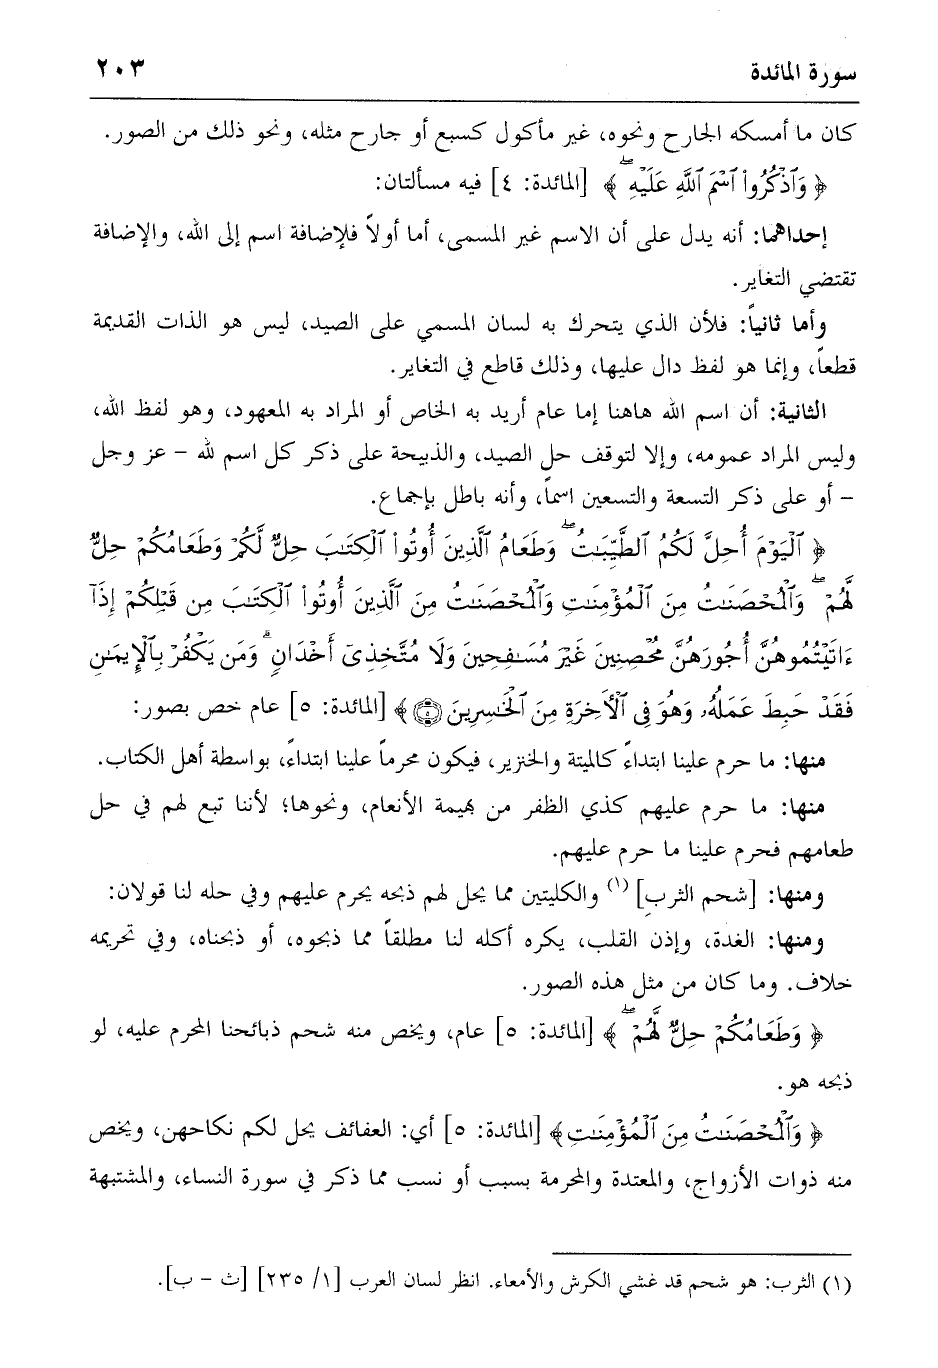 سورة المائدة ٢٠٣
كان ما أمسكه الجارح ونحوه، غير مأكول كسبع أو جارح مثله، ونحو ذلك من الصور.
﴿ وَٱذْكُرُوا۟ ٱسْمَ ٱللَّهِ عَلَيْهِ ۖ ﴾ [المائدة: ٤] فيه مسألتان:
إحداهما: أنه يدل على أن الاسم غير المسمى، أما أولاً فلإضافة اسم إلى الله، والإضافة
تقتضي التغاير.
وأما ثانياً: فلأن الذي يتحرك به لسان المسمي على الصيد، ليس هو الذات القديمة
قطعاً، وإنما هو لفظ دال عليها، وذلك قاطع في التغاير.
الثانية: أن اسم الله هاهنا إما عام أريد به الخاص أو المراد به المعهود، وهو لفظ الله،
وليس المراد عمومه، وإلا لتوقف حل الصيد، والذبيحة على ذكر كل اسم لله - عز وجل
- أو على ذكر التسعة والتسعين اسماً، وأنه باطل بإجماع.
﴿ ٱلْيَوْمَ أُحِلَّ لَكُمُ ٱلطَّيِّبَٰتُ ۖ وَطَعَامُ ٱلَّذِينَ أُوتُوا۟ ٱلْكِتَٰبَ حِلٌّ لَّكُمْ وَطَعَامُكُمْ حِلٌّ
لَّهُمْ ۖ وَٱلْمُحْصَنَٰتُ مِنَ ٱلْمُؤْمِنَٰتِ وَٱلْمُحْصَنَٰتُ مِنَ ٱلَّذِينَ أُوتُوا۟ ٱلْكِتَٰبَ مِن قَبْلِكُمْ إِذَآ
ءَاتَيْتُمُوهُنَّ أُجُورَهُنَّ مُحْصِنِينَ غَيْرَ مُسَٰفِحِينَ وَلَا مُتَّخِذِىٓ أَخْدَانٍ ۗ وَمَن يَكْفُرْ بِٱلْإِيمَٰنِ
فَقَدْ حَبِطَ عَمَلُهُۥ وَهُوَ فِى ٱلْأَخِرَةِ مِنَ ٱلْخَٰسِرِينَ ۝٥ ﴾ [المائدة: ٥] عام خص بصور:
منها: ما حرم علينا ابتداءً كالميتة والخنزير، فيكون محرماً علينا ابتداءً، بواسطة أهل الكتاب.
منها: ما حرم عليهم كذي الظفر من بهيمة الأنعام، ونحوها؛ لأننا تبع لهم في حل
طعامهم فحرم علينا ما حرم عليهم.
ومنها: [شحم الثرب] (١) والكليتين مما يحل لهم ذبحه يحرم عليهم وفي حله لنا قولان:
ومنها: الغدة، وإذن القلب، يكره أكله لنا مطلقاً مما ذبحوه، أو ذبحناه، وفي تحريمه
خلاف. وما كان من مثل هذه الصور.
﴿ وَطَعَامُكُمْ حِلٌّ لَّهُمْ ۖ ﴾ [المائدة: ٥] عام، ويخص منه شحم ذبائحنا المحرم عليه، لو
ذبحه هو.
﴿ وَٱلْمُحْصَنَٰتُ مِنَ ٱلْمُؤْمِنَٰتِ ﴾ [المائدة: ٥] أي: العفائف يحل لكم نكاحهن، ويخص
منه ذوات الأزواج، والمعتدة والمحرمة بسبب أو نسب مما ذكر في سورة النساء، والمشتبهة
(١) الثرب: هو شحم قد غشي الكرش والأمعاء. انظر لسان العرب [١/ ٢٣٥] [ث - ب].